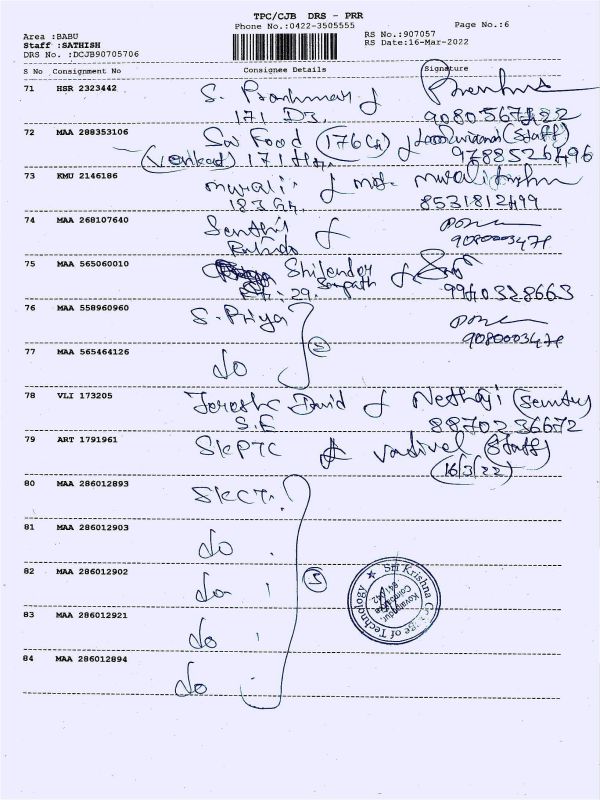 TPC/CJB DRS - PRR
Phone No.:0422-3505555
Page No.:6
Area :BABU
RS No.:907057
Staff :SATHISH
RS Date:16-Mar-2022
DRS No. :DCJB90705706
S No Consignment No Consignee Details Signature
71 HSR 2323442
171 D3.
72 MAA 288353106 Sai Food (176 (Staff)
(Venkat) 171 9788526496
73 KMU 2146186
183 8531812499
74 MAA 268107640 Senthil
9080003471
75 MAA 565060010 Shilender
29. Sampath 9940328663
76 MAA 558960960 S. Priya
9080003471
77 MAA 565464126 do
78 VLI 173205 David Nethaji
S.E 8870236672
79 ART 1791961 SKPTC Vadivel (Staff)
(16/3/22)
80 MAA 286012893 SKCT
81 MAA 286012903 do
82 MAA 286012902 do
83 MAA 286012921 do
84 MAA 286012894 do
5
Sri Krishna College of Technology